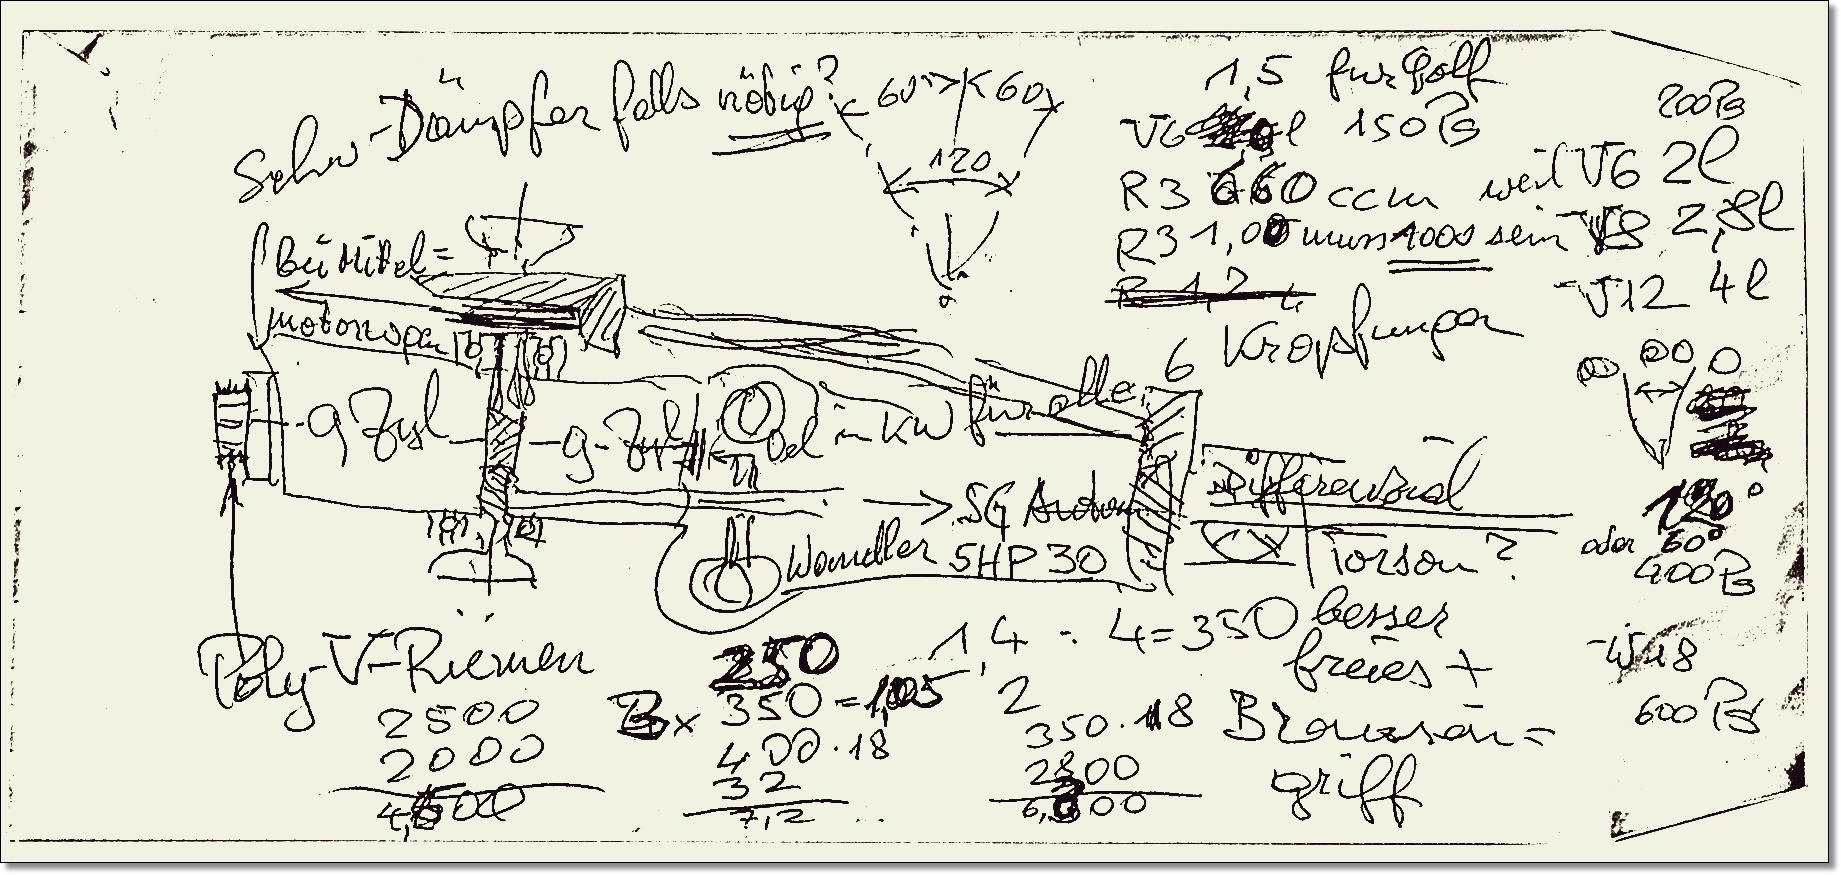 Schw-Dämpfer falls nötig?
60° 60
120
1,5 für Golf
V6 l 150 PS
200 PS
R3 660 ccm weil V6 2l
R3 1,00 muss 1000 sein V8 2,8l
V12 4l
6 Kröpfungen
Bei Mittel=
motorwagen
9 Zyl
9-Zyl
Öl in KW für alle
SG Autom
Wandler 5HP30
Differenzial
Torson?
120°
oder 60°
400 PS
W18
600 PS
Poly-V-Riemen
2500
2000
4,500
250
3x 350 = 1,05
400 · 18
32
7,2
1,4 : 4 = 350
2
350 · 18
2800
6,300
besser
freies +
Brausen=
griff